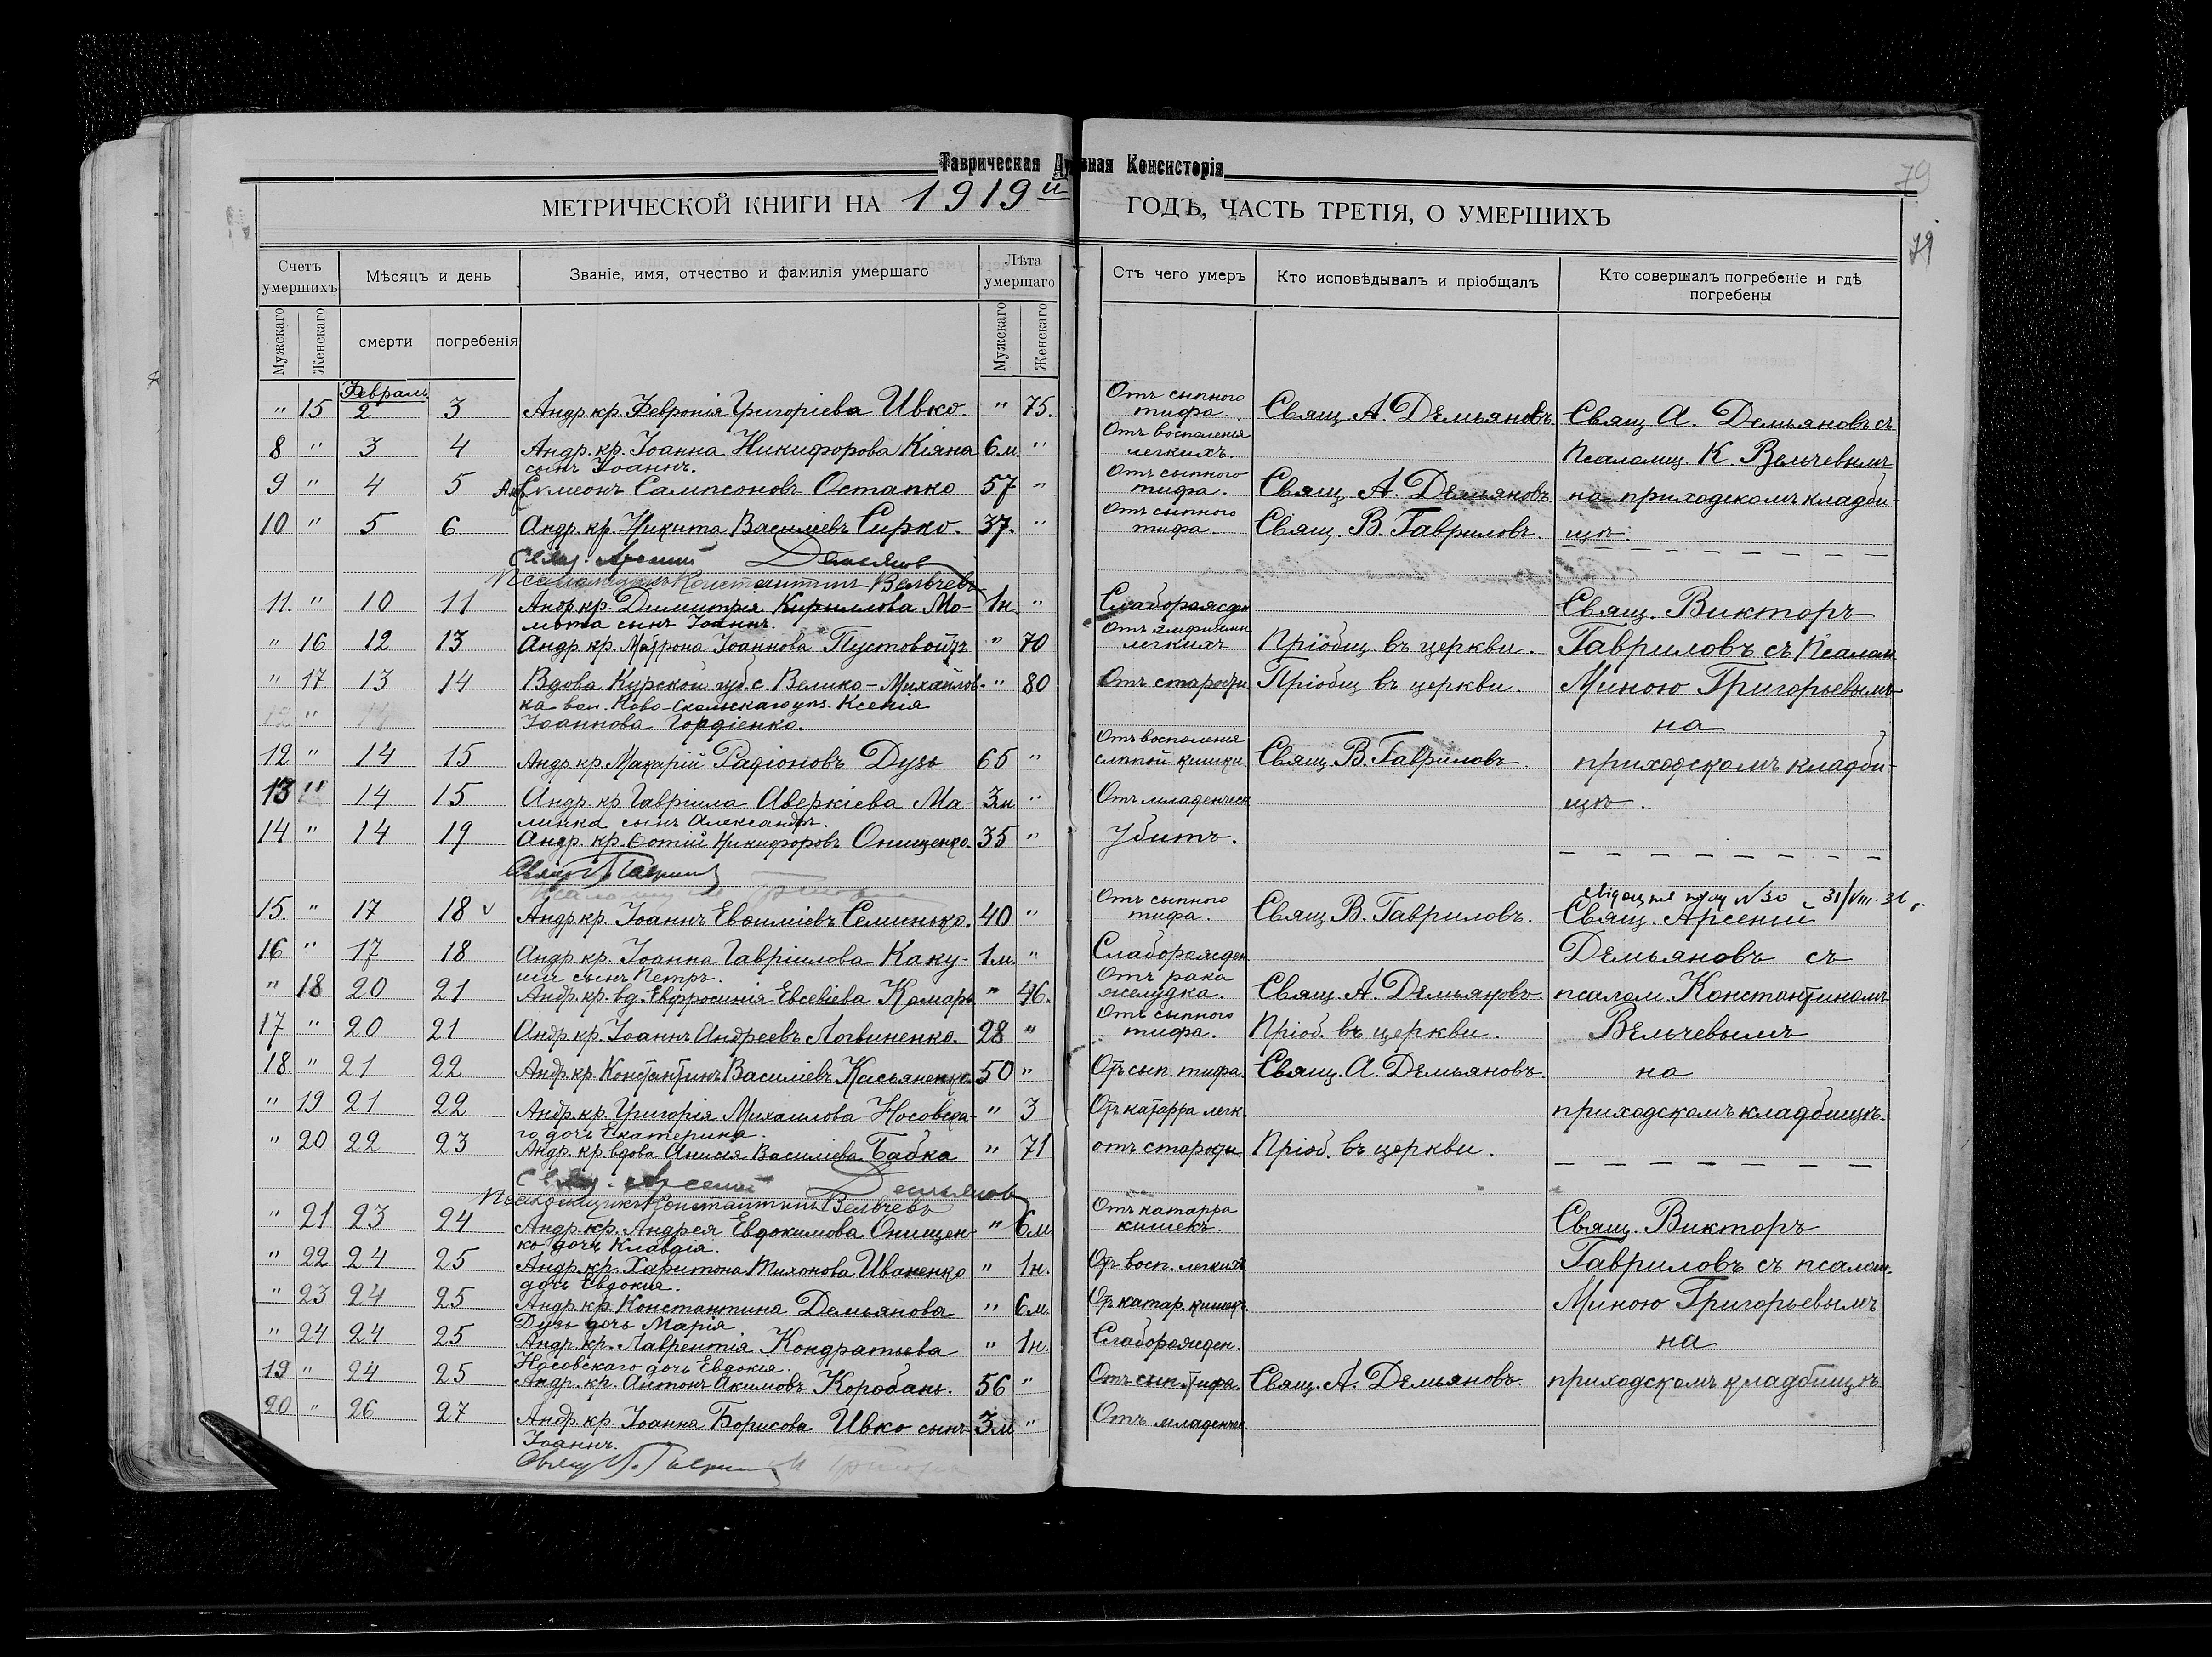 Таврическая Духовная Консисторія
79
МЕТРИЧЕСКОЙ КНИГИ НА 1919й ГОДЪ, ЧАСТЬ ТРЕТІЯ, О УМЕРШИХЪ
79
Счетъ умершихъ
Мѣсяцъ и день
Званіе, имя, отчество и фамилія умершаго
Лѣта умершаго
Отъ чего умеръ
Кто исповѣдывалъ и пріобщалъ
Кто совершалъ погребеніе и гдѣ погребены
Мужскаго Женскаго смерти погребенія Мужскаго Женскаго
Февраль
" 15 2 3 Андр. кр. Февронія Григоріева Ивко " 75. Отъ сыпного тифа. Свящ. А. Демьяновъ. Свящ. А. Демьяновъ съ
8 " 3 4 Андр. кр. Іоанна Никифорова Кіяна 6м. " Отъ воспаленія легкихъ. Псаломщ. К. Вельчевымъ
сынъ Іоаннъ.
9 " 4 5 Симеонъ Сампсоновъ Остапко 57 " Отъ сыпного тифа. Свящ. А. Демьяновъ. на приходскомъ кладби-
10 " 5 6 Андр. кр. Никита Василіевъ Сирко. 37. " Отъ сыпного тифа. Свящ. В. Гавриловъ. щѣ.
Свящ. Арсеній Демьянов
Псаломщикъ Константинъ Вельчевъ
11. " 10 11 Андр. кр. Димитрія Кириллова Мо- 1н. " Слаборожден Свящ. Викторъ
сынъ Іоаннъ.
" 16 12 13 Андр. кр. Матрона Іоаннова " 70 легкихъ Пріобщ. въ церкви. Гавриловъ съ Псалом
" 17 13 14 Вдова Курской губ. с. Велико-Михайлов- " 80 Отъ старости Пріобщ. въ церкви. Миною Григорьевымъ
ка вол. Ново-Оскольскаго уѣз. Ксенія
12 " 14
Іоаннова Гордіенко. на
12 " 14 15 Андр. кр. Макарій Радіоновъ Дузь 65 " Отъ воспаленія слѣпой кишки. Свящ. В. Гавриловъ. приходскомъ кладби-
13 " 14 15 Андр. кр. Гавріила Аверкіева Ма- 3м " Отъ младенческ щѣ.
линка сынъ Александръ.
14 " 14 19 Андр. кр. Фотій Никифоровъ Онищенко. 35 " Убитъ.
Свящ. В. Гаврилов
15. " 17 18 v Андр. кр. Іоаннъ Евѳиміевъ Семинько. 40 " Отъ сыпного тифа. Свящ. В. Гавриловъ. Свящ. Арсеній
№ 30 31/VIII. 31
16 " 17 18 Андр. кр. Іоанна Гавріилова Каку- 1м " Слаборожден Демьяновъ съ
ши сынъ Петръ.
" 18 20 21 Андр. кр. вд. Евфросинія Евсевіева Комаръ " 46. Отъ рака желудка. Свящ. А. Демьяновъ. псалом. Константиномъ
17 " 20 21 Андр. кр. Іоаннъ Андреевъ Логвиненко. 28 " Отъ сыпного тифа. Пріоб. въ церкви. Вельчевымъ
18. " 21 22 Андр. кр. Константинъ Василіевъ Касьяненко. 50 " Отъ сып. тифа. Свящ. А. Демьяновъ. на
" 19 21 22 Андр. кр. Григорія Михаилова Носовска- " 3 Отъ катарра легк. приходскомъ кладбищѣ.
го дочь Екатерина.
" 20 22 23 Андр. кр. вдова Анисія Василіева Бабка " 71 отъ старости. Пріоб. въ церкви.
Свящ. Арсеній Демьянов
Псаломщикъ Константинъ Вельчевъ
" 21 23 24 Андр. кр. Андрея Евдокимова Онищен- " 6м Отъ катарра кишекъ. Свящ. Викторъ
ко дочь Клавдія.
" 22 24 25 Андр. кр. Харитона Тихонова Иваненко " 1н. От восп. легкихъ Гавриловъ съ псалом.
дочь Евдокія.
" 23 24 25 Андр. кр. Константина Демьянова " 6м. От катар. кишекъ. Миною Григорьевымъ
Дузь дочь Марія
" 24 24 25 Андр. кр. Лаврентія Кондратьева " 1н. Слаборожден. на
Носовскаго дочь Евдокія.
19 " 24 25 Андр. кр. Антонъ Акимовъ Коробань. 56 " Отъ сып. тифа. Свящ. А. Демьяновъ. приходскомъ кладбищѣ
20 " 26 27 Андр. кр. Іоанна Борисова Ивко сынъ 3м " Отъ младенчес
Іоаннъ.
Свящ. В. Гаврилов